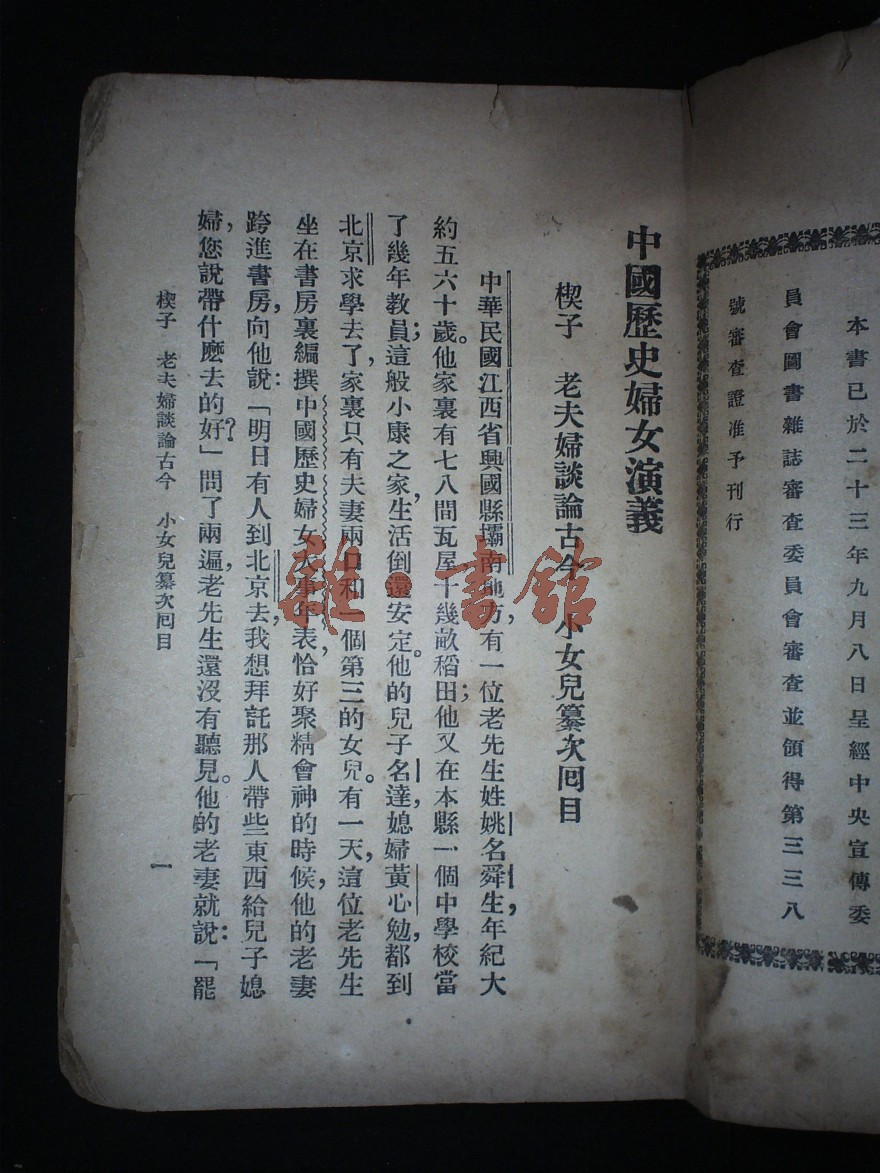 本書已於二十三年九月八日呈經中央宣傳委
員會圖書雜誌審查委員會審查並領得第三三八
號審查證准予刊行
中國歷史婦女演義
楔子　老夫婦談論古今　小女兒纂次囘目
中華民國江西省興國縣壩南地方有一位老先生，姓姚名舜生，年紀大
約五六十歲。他家裏有七八間瓦屋十幾畝稻田；他又在本縣一個中學校當
了幾年教員；這般小康之家，生活倒還安定。他的兒子名達，媳婦黃心勉，都到
北京求學去了，家裏只有夫妻兩口和一個第三的女兒。有一天，這位老先生
坐在書房裏編撰中國歷史婦女大事年表，恰好聚精會神的時候，他的老妻
跨進書房，向他說：「明日有人到北京去，我想拜託那人帶些東西給兒子媳
婦，您說帶什麼去的好？」問了兩遍，老先生還沒有聽見。他的老妻就說：「罷
楔子　老夫婦談論古今　小女兒纂次囘目
一
雜·書館